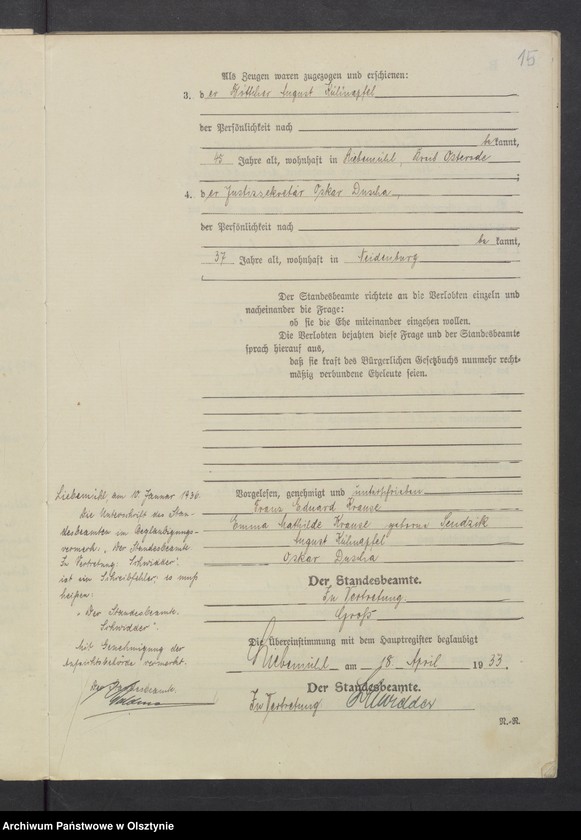 15
Als Zeugen waren zugezogen und erschienen:
3. der August Kühnapfel
der Persönlichkeit nach
be kannt,
Jahre alt, wohnhaft in Liebemühl, Kreis Osterode
;
4. der Justizsekretär Oskar Duscha,
der Persönlichkeit nach
be kannt,
37 Jahre alt, wohnhaft in Neidenburg
Der Standesbeamte richtete an die Verlobten einzeln und
nacheinander die Frage:
ob sie die Ehe miteinander eingehen wollen.
Die Verlobten bejahten diese Frage und der Standesbeamte
sprach hierauf aus,
daß sie kraft des Bürgerlichen Gesetzbuchs nunmehr recht-
mäßig verbundene Eheleute seien.
Vorgelesen, genehmigt und unterschrieben
Franz Eduard Krause
Emma Mathilde Krause geborne Sendzik
August Kühnapfel
Oskar Duscha
Der Standesbeamte.
In Vertretung
Groß
Die Übereinstimmung mit dem Hauptregister beglaubigt
Liebemühl am 18. April 1933.
Der Standesbeamte.
In Vertretung Schwidder
N.-R.
Liebemühl, am 10. Januar 1936
Die Unterschrift des Stan-
desbeamten im Beglaubigungs-
vermerk: „Der Standesbeamte
In Vertretung: Schwidder"
ist ein Schreibfehler, es muß
heißen:
„Der Standesbeamte.
Schwidder".
Mit Genehmigung der
Aufsichtsbehörde vermerkt.
Der Standesbeamte.
Archiwum Państwowe w Olsztynie